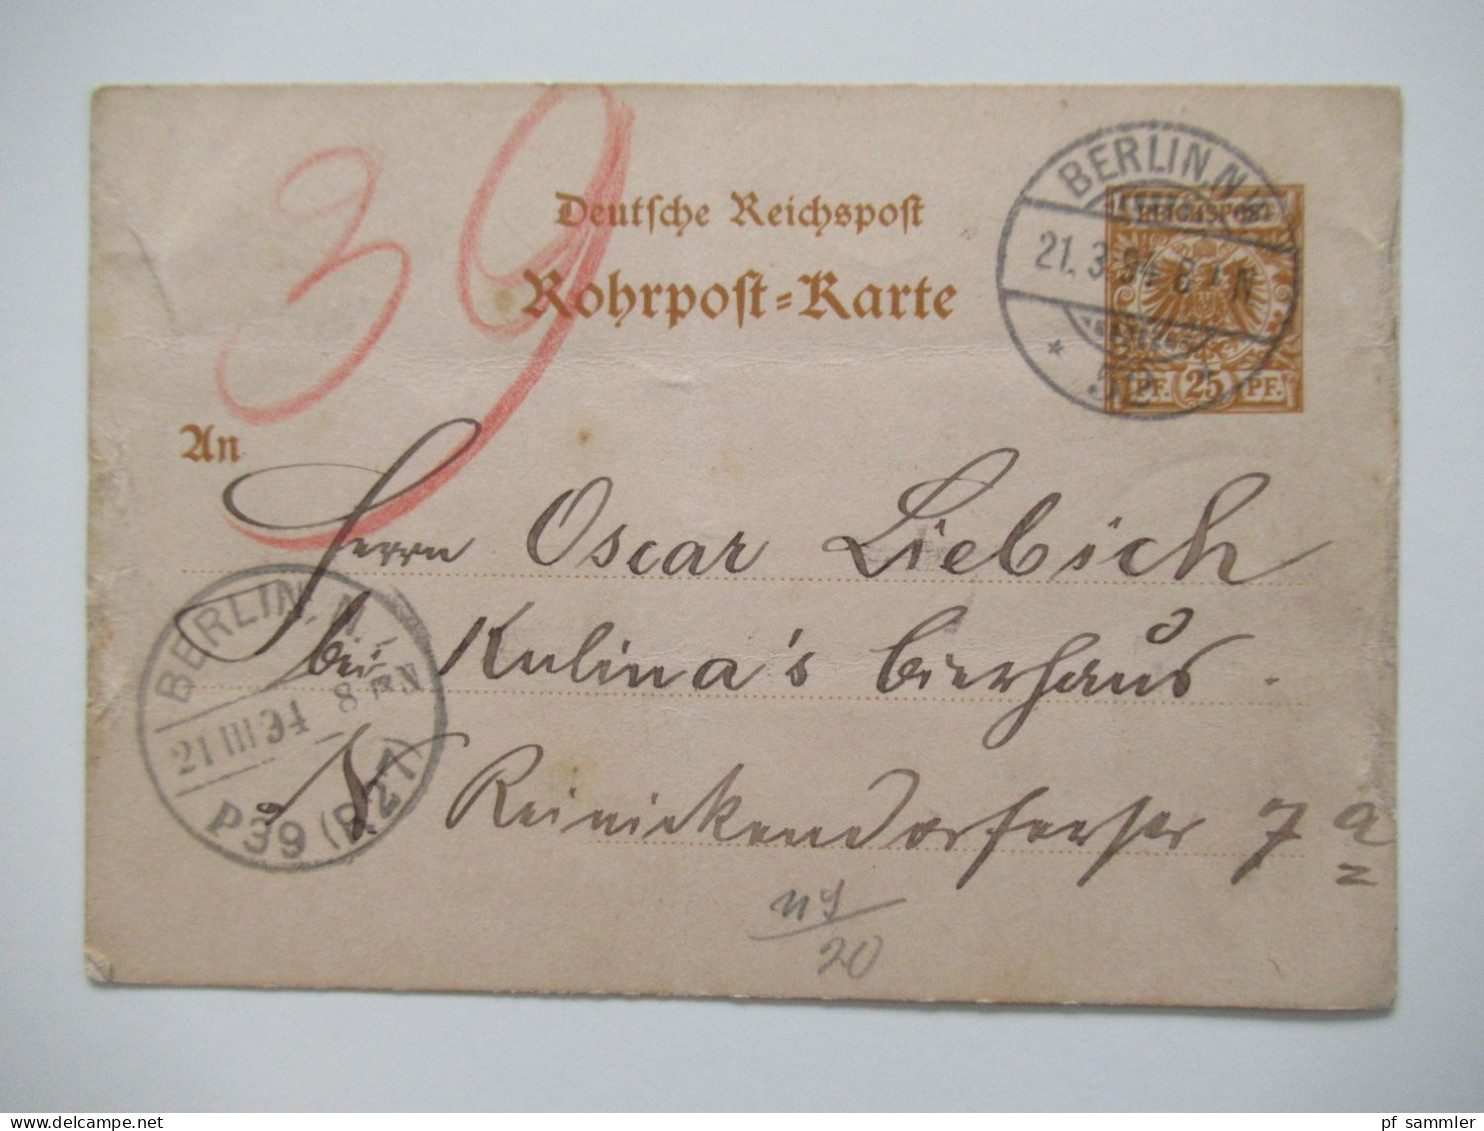 39
Deutsche Reichspost
Rohrpost=Karte
BERLIN.N.
21.3.94. 8
REICHSPOST
PF. 25 PF.
An
Herrn Oscar Liebich
bei Kulina's Bierhaus.
N Reinickendorferstr 7a
BERLIN. N.
21 III 94 8 N
P39 (R.27)
20
delcampe.net
pf_sammler